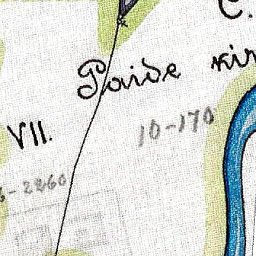 C.
Paide kir
VII.
10-170
-2260